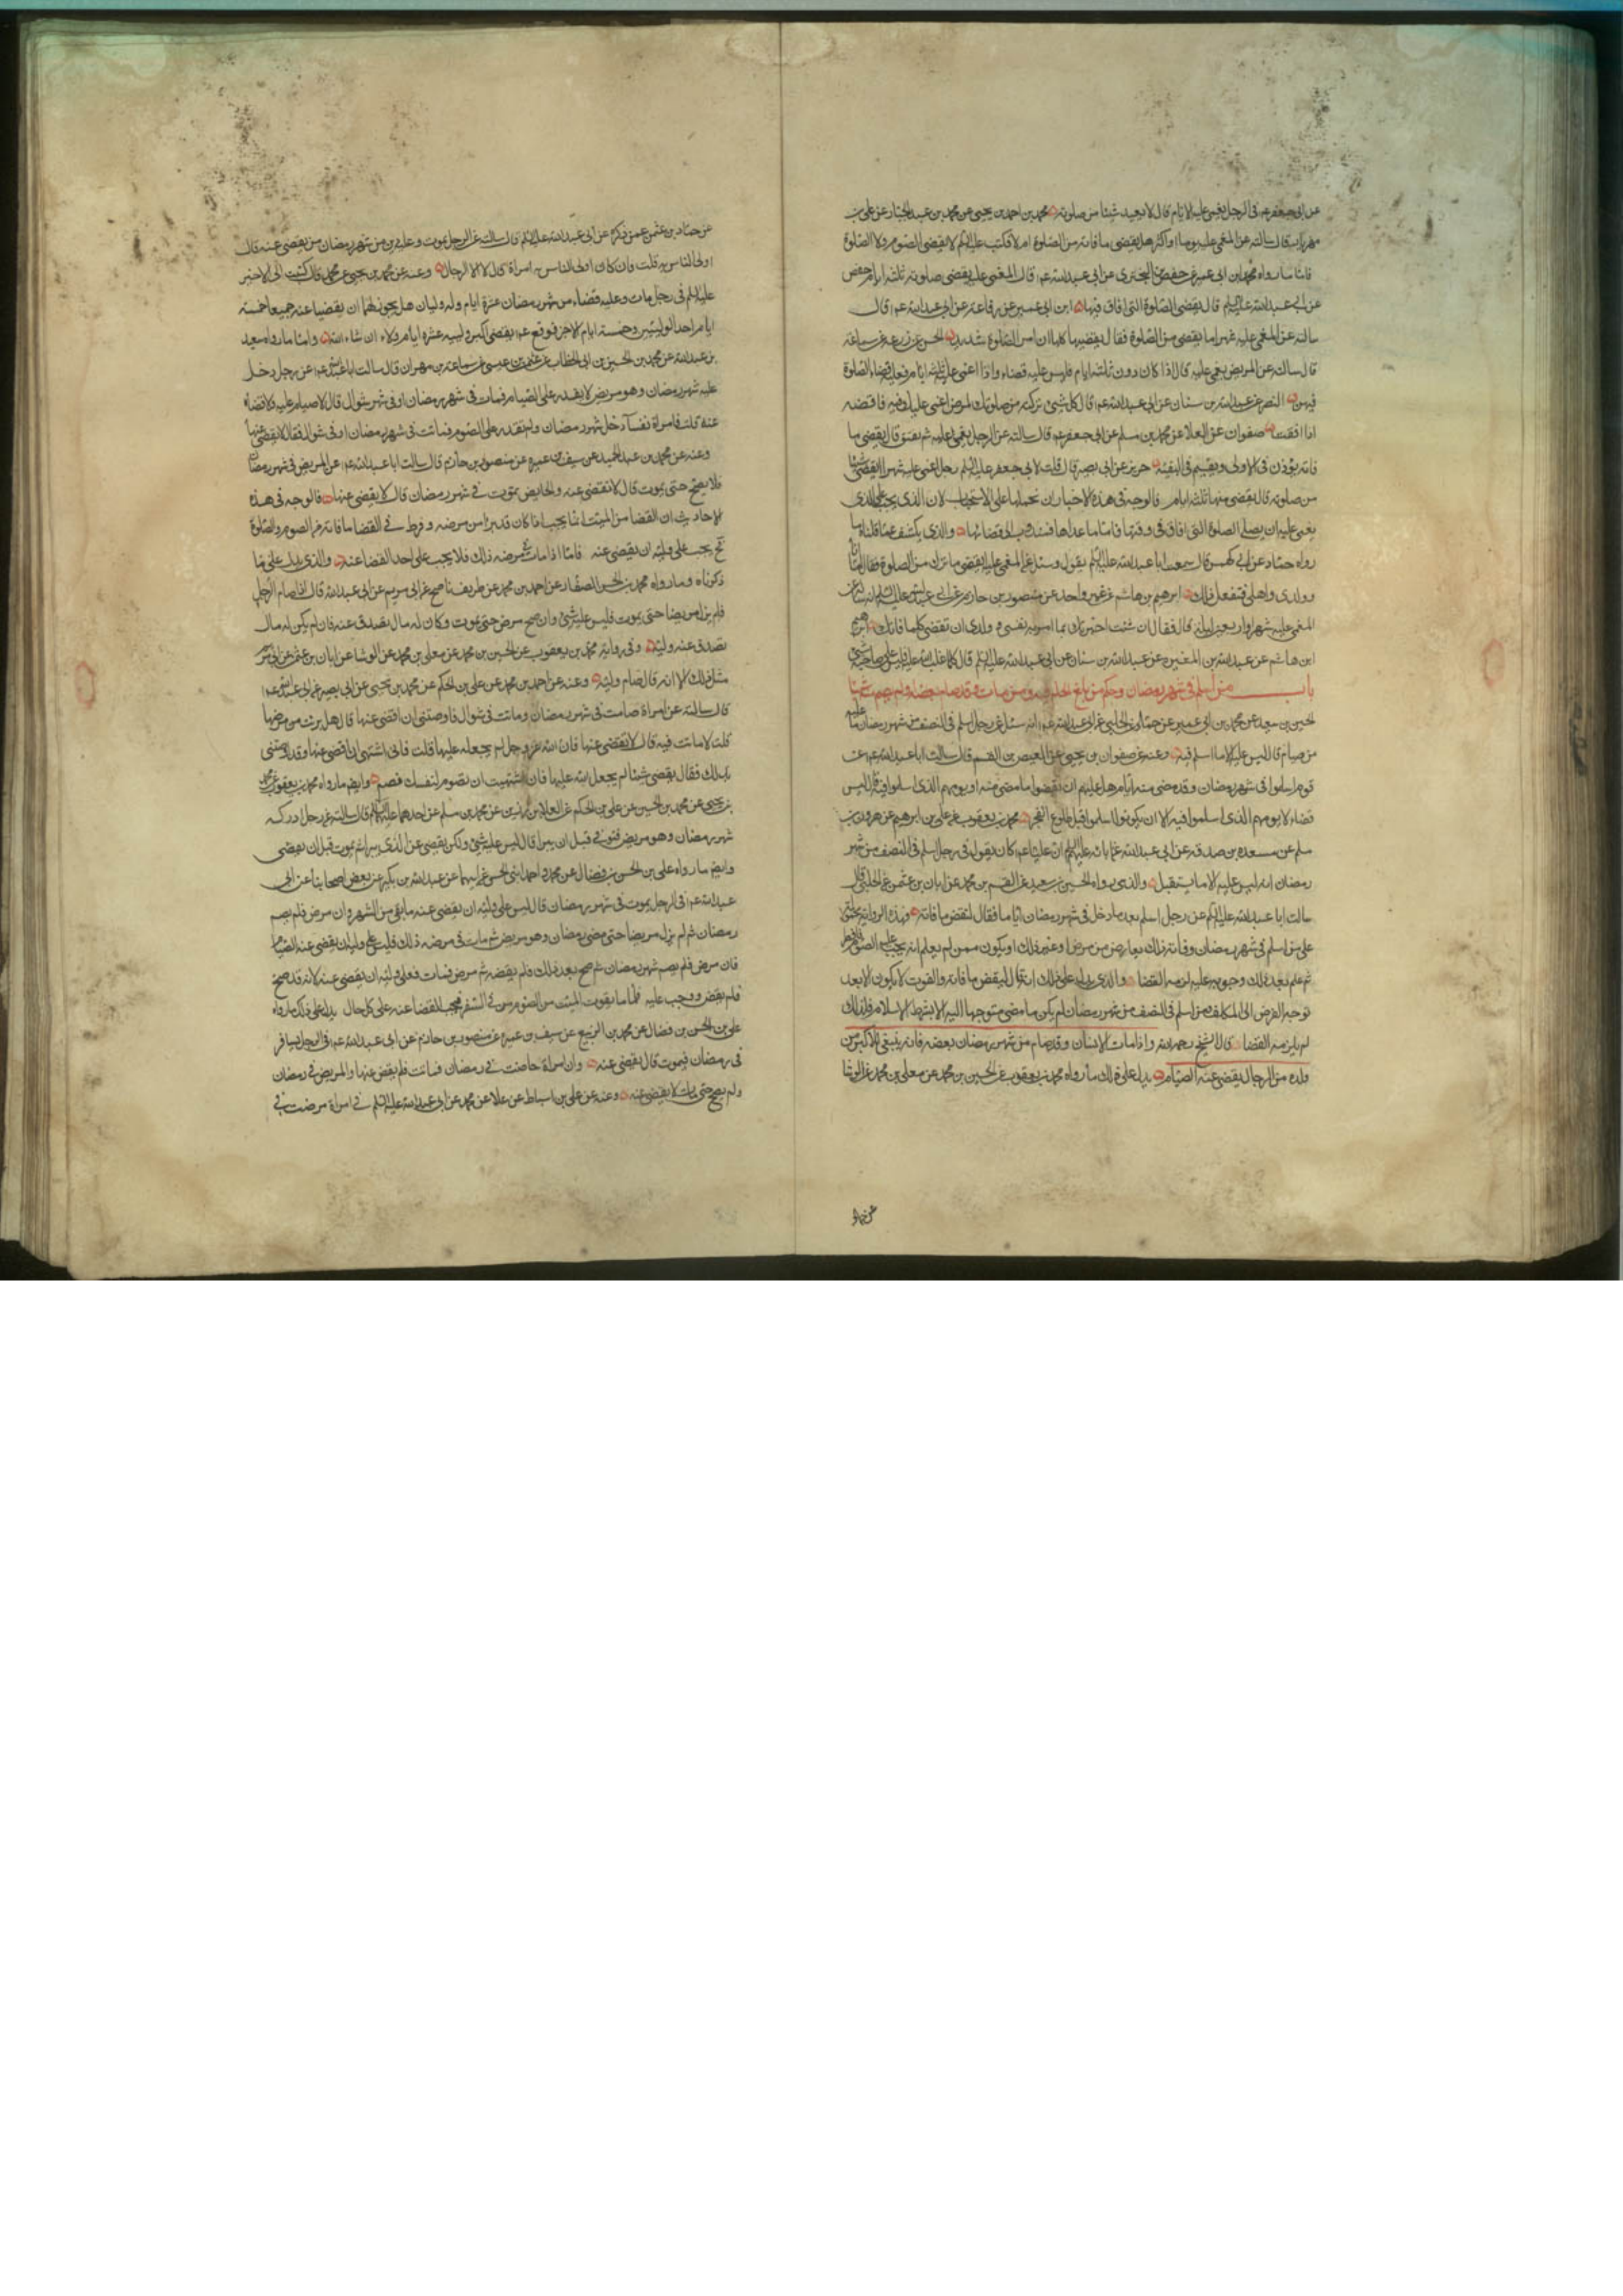 عن ابى جعفر عم فى الرجل يغمى عليه الايام قال لا يعيد شيئا من صلوته محمد بن احمد بن يحيى عن محمد بن عبد الجبار عن على بن
مهزيار قال سالته عن المغمى عليه يوما او اكثر هل يقضى ما فاته من الصلوة ام لا فكتب عليه السلم لا يقضى الصوم ولا الصلوة
فاما ما رواه محمد بن ابى عمير عن حفص بن البخترى عن ابى عبد الله عم قال المغمى عليه يقضى صلوته ثلثه ايام حفص
عن ابى عبد الله عليه السلم قال يقضى الصلوة التى افاق فيها ابن ابى عمير عن رفاعة عن ابى عبد الله عم قال
سالته عن المغمى عليه شهرا ما يقضى من الصلوة فقال يقضيها كلها ان امر الصلوة شديد الحسن عن زرعه عن سماعة
قال سالته عن المريض يغمى عليه قال اذا كان دون ثلثة ايام فليس عليه قضاء واذا اغمى عليه ثلثه ايام فعليه قضاء الصلوة
فيهن النضر عن عبد الله بن سنان عن ابى عبد الله عم قال كل شئ تركته من صلوتك لمرض اغمى عليك فيه فاقضه
اذا افقت صفوان عن العلا عن محمد بن مسلم عن ابى جعفر عم قال سالته عن الرجل يغمى عليه ثم يفيق قال يقضى ما
فاته يؤذن فى الاولى ويقيم فى البقية حريز عن ابى بصير قال قلت لابى جعفر عليه السلم رجل اغمى عليه شهرا ايقضى شيئا
من صلوته قال يقضى منها ثلثه ايام فالوجه فى هذه الاخبار ان نحملها على الاستحباب لان الذى يجب على الذى
يغمى عليه ان يصلى الصلوة التى افاق فى وقتها فاما ما عداها فمندوب الى قضائها والذى يكشف عما قلناه ما
رواه حماد عن ابى كهمس قال سمعت ابا عبد الله عليه السلم يقول وسئل عن المغمى عليه ايقضى ما ترك من الصلوة فقال اما انا
وولدى واهلى فنفعل ذلك ابرهيم بن هاشم عن غير واحد عن منصور بن حازم عن ابى عبد الله عليه السلم انه سأله عن
المغمى عليه شهرا او اربعين ليلة قال فقال ان شئت اخبرتك بما امر به نفسى وولدى ان تقضى كلما فاتك ابرهيم
ابن هاشم عن عبد الله بن المغيرة عن عبد الله بن سنان عن ابى عبد الله عليه السلم قال كلما غلب الله عليه فليس على صاحبه شئ
باب من اسلم فى شهر رمضان وحكم من بلغ الحلم فيه ومن مات وقد صام بعضه ولم يصم شيئا
لحسين بن سعيد عن محمد بن ابى عمير عن حماد عن الحلبى عن ابى عبد الله عم انه سئل عن رجل اسلم فى النصف من شهر رمضان ما عليه
من صيام قال ليس عليه الا ما اسلم فيه وعنه عن صفوان بن يحيى عن العيص بن القسم قال سالت ابا عبد الله عم عن
قوم اسلموا فى شهر رمضان وقد مضى منه ايام هل عليهم ان يقضوا ما مضى منه او يومهم الذى اسلموا فيه قال ليس
قضاء الا يومهم الذى اسلموا فيه الا ان يكونوا اسلموا قبل طلوع الفجر محمد بن يعقوب عن على بن ابرهيم عن هرون بن
مسلم عن مسعدة بن صدقه عن ابى عبد الله عن ابائه عليهم السلم ان عليا عم كان يقول فى رجل اسلم فى النصف من شهر
رمضان انه ليس عليه الا ما يستقبل والذى رواه الحسين بن سعيد عن القسم بن محمد عن ابان بن عثمن عن الحلبى قال
سالت ابا عبد الله عليه السلم عن رجل اسلم بعد ما دخل فى شهر رمضان اياما فقال ليقض ما فاته وهذه الرواية محمولة
على من اسلم فى شهر رمضان وفاته ذلك بعارض من مرض او غير ذلك او يكون ممن لم يعلم انه يجب عليه الصوم فافطر
ثم علم بعد ذلك وجوبه عليه لزمه القضا والذى يدل على ذلك انه قال ليقض ما فاته والفوت لا يكون الا بعد
توجه الفرض الى المكلف ومن اسلم فى النصف من شهر رمضان لم يكن ما مضى متوجها اليه الا بشرط الاسلام فلذلك
لم يلزمه القضا قال الشيخ رحمه الله واذا مات الانسان وقد صام من شهر رمضان بعضه فانه ينبغى للاكبر من
ولده من الرجال ان يقضى عنه الصيام يدل على ذلك ما رواه محمد بن يعقوب عن الحسين بن محمد عن معلى بن محمد عن الوشا
عن حماد
عن حماد بن عثمن عمن ذكره عن ابى عبد الله عليه السلم قال سالته عن الرجل يموت وعليه دين من شهر رمضان من يقضى عنه قال
اولى الناس به قلت وان كان اولى الناس به امراة قال لا الا الرجال وعنه عن محمد بن يحيى عن محمد قال كتبت الى الاخير
عليه السلم فى رجل مات وعليه قضاء من شهر رمضان عشرة ايام وله وليان هل يجوز لهما ان يقضيا عنه جميعا خمسة
ايام احد الوليين وخمسة ايام الاخر فوقع عم يقضى اكبر ولييه عشرة ايام ولاء ان شاء الله واما ما رواه سعد
بن عبد الله عن محمد بن الحسين بن ابى الخطاب عن عثمن بن عيسى عن سماعة بن مهران قال سالت ابا عبد الله عم عن رجل دخل
عليه شهر رمضان وهو مريض لا يقدر على الصيام فمات فى شهر رمضان او فى شهر شوال قال لا صيام عليه ولا قضاء
عنه قلت فامراة نفسا دخل شهر رمضان ولم تقدر على الصوم فماتت فى شهر رمضان او فى شوال فقال لا يقضى عنها
وعنه عن محمد بن عبد الحميد عن سيف بن عميره عن منصور بن حازم قال سالت ابا عبد الله عم عن المريض فى شهر رمضان
فلا يصح حتى يموت قال لا يقضى عنه والحايض تموت فى شهر رمضان قال لا يقضى عنها فالوجه فى هذه
الاحاديث ان القضا من الميت انما يجب اذا كان قد برا من مرضه وفرط فى القضا ما فاته من الصوم والصلوة
يجب على وليه ان يقضى عنه فاما اذا مات فى مرضه ذلك فلا يجب على احد القضا عنه والذى يدل على ما
ذكرناه ما رواه محمد بن الحسن الصفار عن احمد بن محمد عن ظريف بن ناصح عن ابى مريم عن ابى عبد الله قال اذا صام الرجل
فلم يزل مريضا حتى يموت فليس عليه شئ وان صح ثم مرض حتى يموت وكان له مال تصدق عنه فان لم يكن له مال
تصدق عنه وليه وفى رواية محمد بن يعقوب عن الحسين بن محمد عن معلى بن محمد عن الوشا عن ابان بن عثمن عن ابى مريم
مثل ذلك الا انه قال صام وليه وعنه عن احمد بن محمد عن على بن الحكم عن محمد بن يحيى عن ابى بصير عن ابى عبد الله عم
قال سالته عن امراة صامت فى شهر رمضان وماتت فى شوال فاوصتنى ان اقضى عنها قال هل برئت من مرضها
قلت لا ماتت فيه قال لا تقضى عنها فان الله عز وجل لم يجعله عليها قلت فانى اشتهى ان اقضى عنها وقد اوصتنى
بذلك فقال يقضى شيئا لم يجعل الله عليها فان اشتهيت ان تصوم لنفسك فصم وايضا ما رواه محمد بن يعقوب عن محمد
بن يحيى عن محمد بن الحسين عن على بن الحكم عن العلاء بن رزين عن محمد بن مسلم عن احدهما عليهما السلم قال سالته عن رجل ادركه
شهر رمضان وهو مريض فتوفى قبل ان يبرا قال ليس عليه شئ ولكن يقضى عن الذى يبرا ثم يموت قبل ان يقضى
وايضا ما رواه على بن الحسن بن فضال عن محمد واحمد ابنى الحسن عن ابيهما عن عبد الله بن بكير عن بعض اصحابنا عن ابى
عبد الله عم فى الرجل يموت فى شهر رمضان قال ليس على وليه ان يقضى عنه ما بقى من الشهر وان مرض فلم يصم
رمضان ثم لم يزل مريضا حتى مضى رمضان وهو مريض ثم مات فى مرضه ذلك فليس على وليه ان يقضى عنه الصيام
فان مرض فلم يصم شهر رمضان ثم صح بعد ذلك فلم يقضه ثم مرض فمات فعلى وليه ان يقضى عنه لانه قد صح
فلم يقض ووجب عليه فاما ما يفوت الميت من الصوم فى السفر فيجب القضا عنه على كل حال يدل على ذلك ما رواه
على بن الحسن بن فضال عن محمد بن الربيع عن سيف بن عميرة عن منصور بن حازم عن ابى عبد الله عم فى الرجل يسافر
فى رمضان فيموت قال يقضى عنه وان امراة حاضت فى رمضان فماتت فلم يقض عنها والمريض فى رمضان
ولم يصح حتى مات لا يقضى عنه وعنه عن على بن اسباط عن علا عن محمد عن ابى عبد الله عليه السلم فى امراة مرضت فى